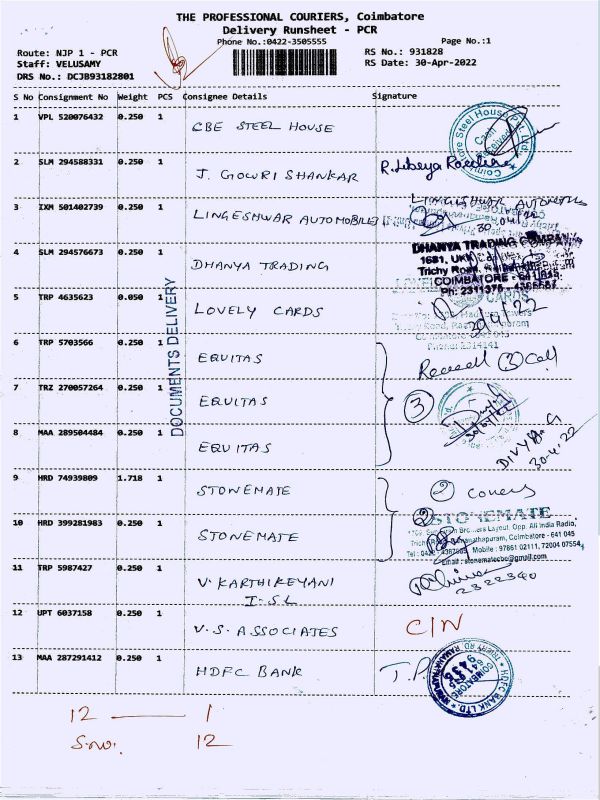 THE PROFESSIONAL COURIERS, Coimbatore
Delivery Runsheet - PCR
Phone No.:0422-3505555
Page No.:1
Route: NJP 1 - PCR
RS No.: 931828
Staff: VELUSAMY
RS Date: 30-Apr-2022
DRS No.: DCJB93182801
S No Consignment No Weight PCS Consignee Details Signature
1 VPL 520076432 0.250 1 CBE STEEL HOUSE
2 SLM 294588331 0.250 1 J. GOWRI SHANKAR
3 IXM 501402739 0.250 1 LINGESHWAR AUTOMOBILE
30/04/22
4 SLM 294576673 0.250 1 DHANYA TRADING
DHANYA TRADING COMPANY
Trichy Road,
COIMBATORE
5 TRP 4635623 0.050 1 LOVELY CARDS
30/4/22
DOCUMENTS DELIVERY
6 TRP 5703566 0.250 1 EQUITAS
7 TRZ 270057264 0.250 1 EQUITAS
3
8 MAA 289504484 0.250 1 EQUITAS
30-4-22
9 HRD 74939809 1.718 1 STONEMATE 2 covers
10 HRD 399281983 0.250 1 STONEMATE 2
STONEMATE
Layout, Opp. All India Radio,
Coimbatore - 641 045
Mobile : 97861 02111, 72004 07554
Email : stonematecbe@gmail.com
11 TRP 5987427 0.250 1 V. KARTHIKEYANI
I-SL
12 UPT 6037158 0.250 1 V.S. ASSOCIATES C/N
13 MAA 287291412 0.250 1 HDFC BANK
HDFC BANK LTD
COIMBATORE
12 — 1
S.no. 12